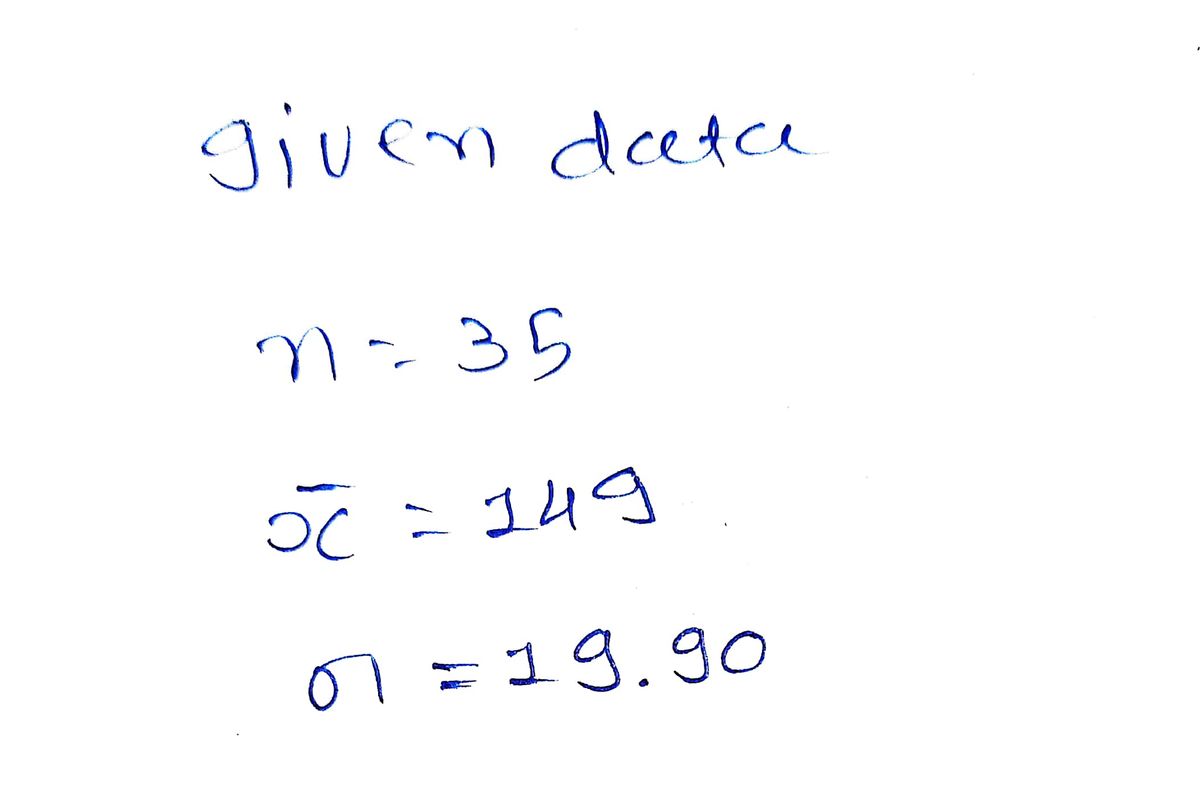 given data
n = 35
x̄ = 149
σ = 19.90